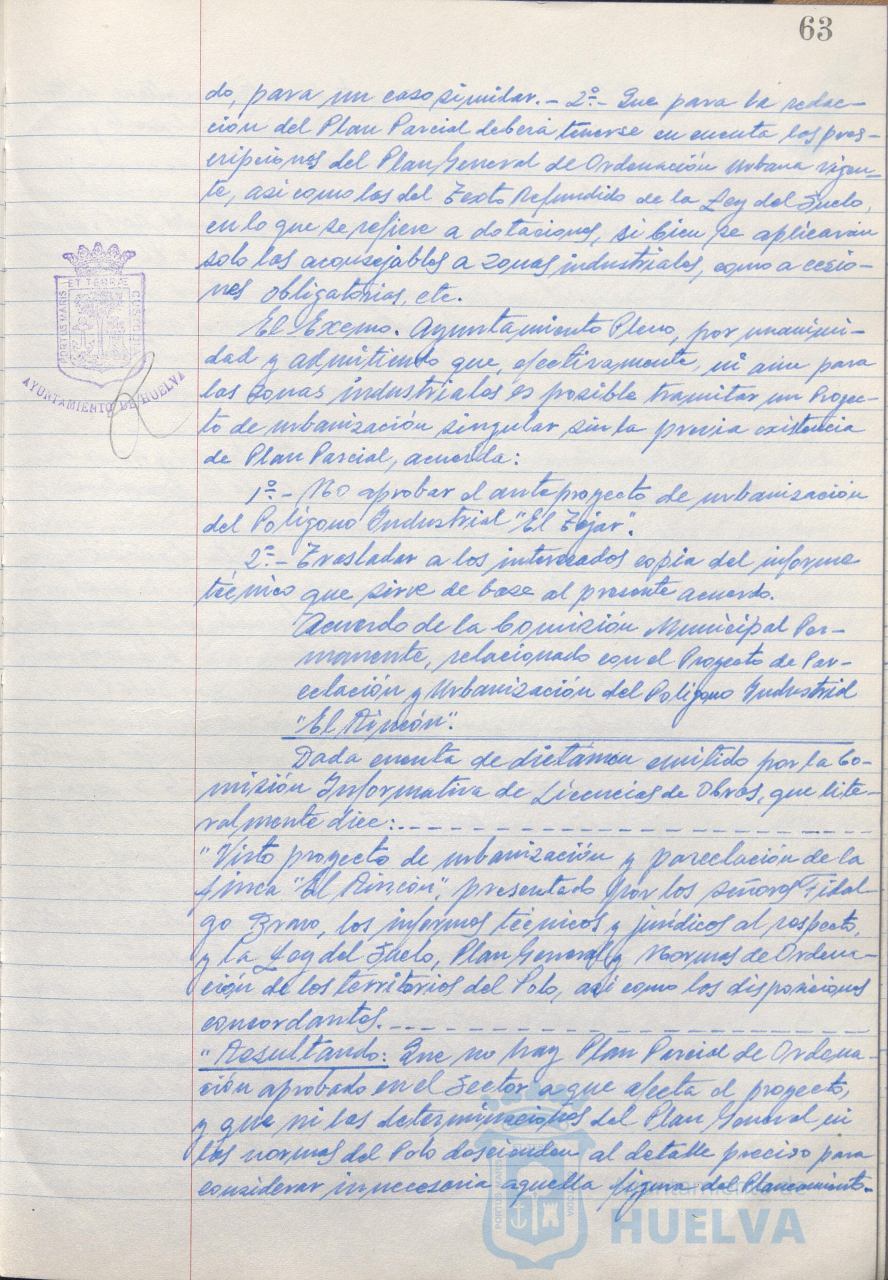 63
do, para un caso similar.- 2º.- Que para la redac-
ción del Plan Parcial deberá tenerse en cuenta las pres-
cripciones del Plan General de Ordenación Urbana vigen-
te, así como las del Texto Refundido de la Ley del Suelo,
en lo que se refiere a dotaciones, si bien se aplicarán
solo las aconsejables a zonas industriales, como a cesio-
nes obligatorias, etc.
El Excmo. Ayuntamiento Pleno, por unanimi-
dad y admitiendo que, efectivamente, ni aún para
las zonas industriales es posible tramitar un Proyec-
to de urbanización singular sin la previa existencia
de Plan Parcial, acuerda:
1º.- No aprobar el anteproyecto de urbanización
del Polígono Industrial "El Tejar".
2º.- Trasladar a los interesados copia del informe
técnico que sirve de base al presente acuerdo.
Acuerdo de la Comisión Municipal Per-
manente, relacionado con el Proyecto de Par-
celación y Urbanización del Polígono Industrial
"El Rincón".
Dada cuenta de dictámen emitido por la Co-
misión Informativa de Licencias de Obras, que lite-
ralmente dice:
"Visto proyecto de urbanización y parcelación de la
finca "El Rincón", presentado por los señores Fidal-
go Bravo, los informes técnicos y jurídicos al respecto,
y la Ley del Suelo, Plan General y Normas de Ordena-
ción de los territorios del Polo, así como las disposiciones
concordantes.
"Resultando: Que no hay Plan Parcial de Ordena-
ción aprobado en el Sector a que afecta el proyecto,
y que ni las determinaciones del Plan General ni
las normas del Polo descienden al detalle preciso para
considerar innecesaria aquella figura del Planeamiento.-
PORTUS MARIS ET TERRÆ CUSTODIA
AYUNTAMIENTO DE HUELVA
PORTUS MARIS
CUSTODIA
Ayuntamiento de
HUELVA